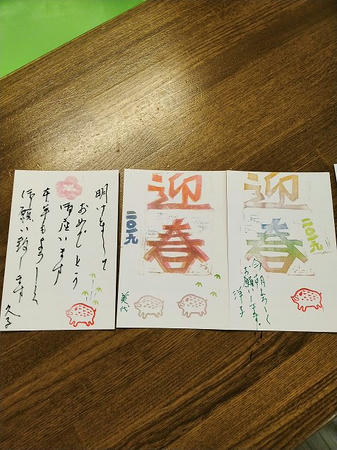 明けまして
おめでとう
御座います
本年もよろしく
御願い致します
久子
迎春
二〇一九
迎春
二〇一九
今年もよろしく
お願いします。
洋子